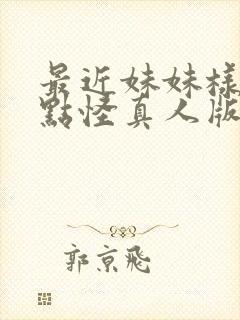 最近妹妹樣
點怪真人版
郭京飛